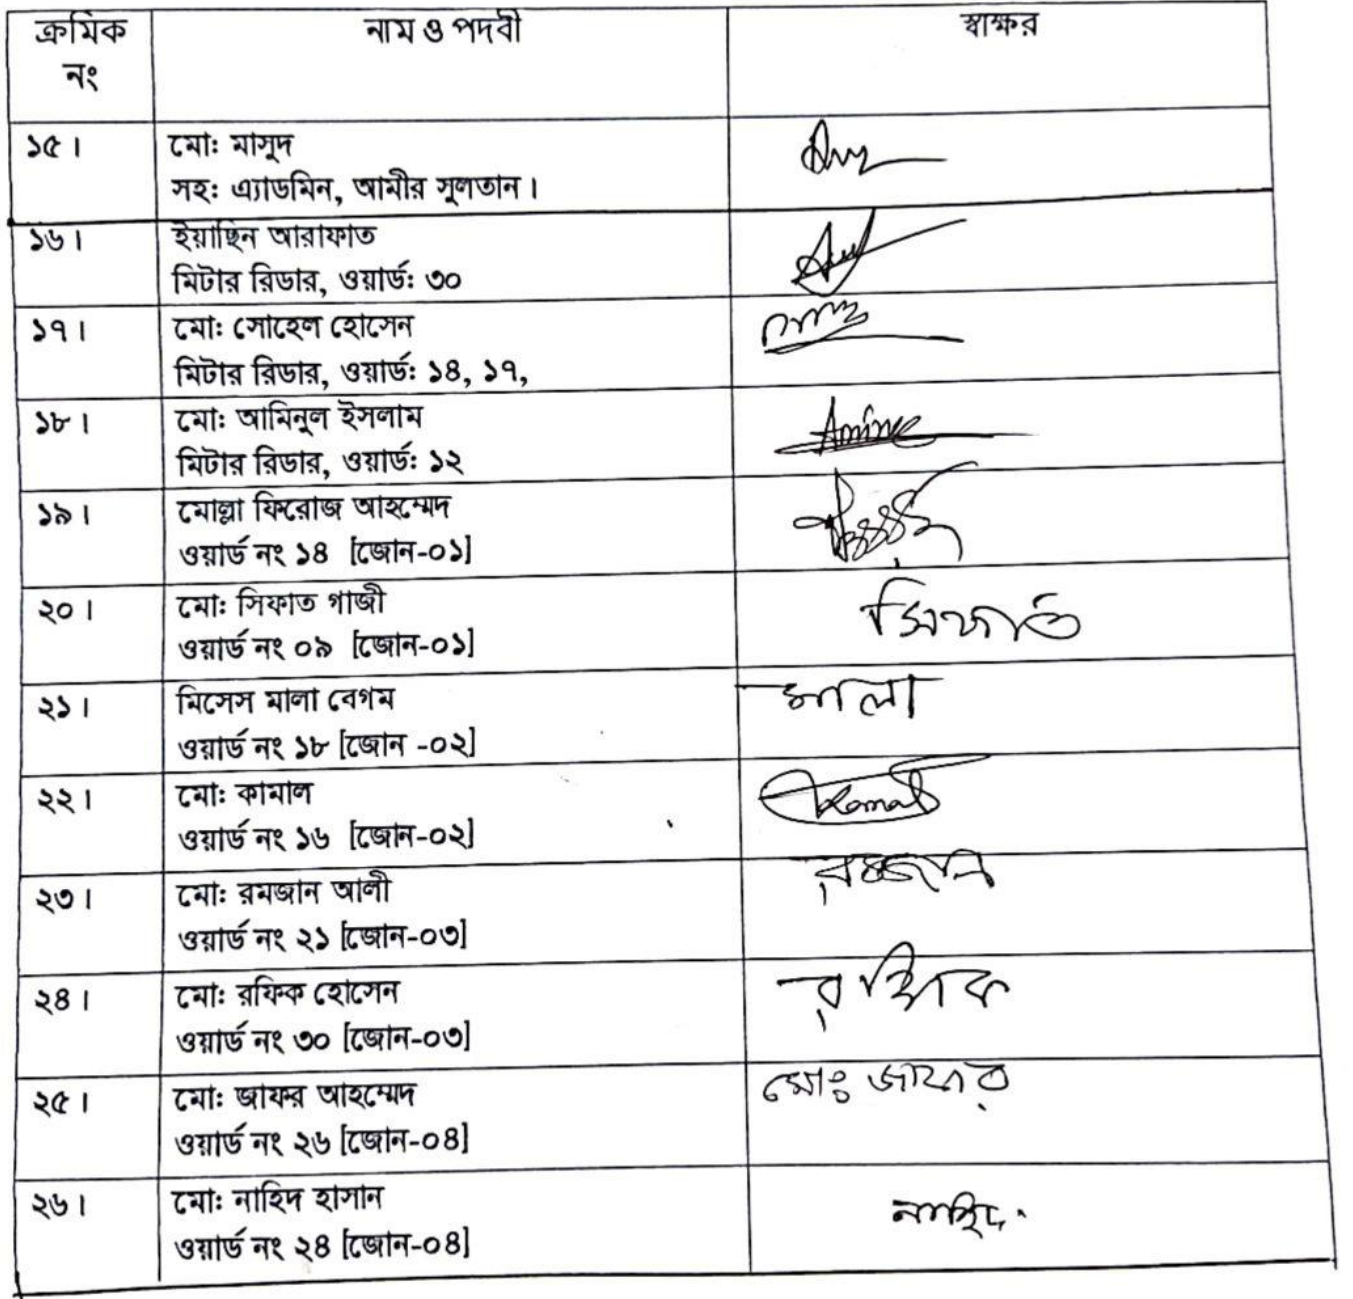 ক্রমিক নং	নাম ও পদবী	স্বাক্ষর
১৫। মোঃ মাসুদ
সহঃ এ্যাডমিন, আমীর সুলতান।
১৬। ইয়াছিন আরাফাত
মিটার রিডার, ওয়ার্ডঃ ৩০
১৭। মোঃ সোহেল হোসেন
মিটার রিডার, ওয়ার্ডঃ ১৪, ১৭,
১৮। মোঃ আমিনুল ইসলাম
মিটার রিডার, ওয়ার্ডঃ ১২
১৯। মোল্লা ফিরোজ আহম্মেদ
ওয়ার্ড নং ১৪ [জোন-০১]
২০। মোঃ সিফাত গাজী	সিফাত
ওয়ার্ড নং ০৯ [জোন-০১]
২১। মিসেস মালা বেগম	মালা
ওয়ার্ড নং ১৮ [জোন -০২]
২২। মোঃ কামাল	Kamal
ওয়ার্ড নং ১৬ [জোন-০২]
২৩। মোঃ রমজান আলী	রমজান
ওয়ার্ড নং ২১ [জোন-০৩]
২৪। মোঃ রফিক হোসেন	রফিক
ওয়ার্ড নং ৩০ [জোন-০৩]
২৫। মোঃ জাফর আহম্মেদ	মোঃ জাফর
ওয়ার্ড নং ২৬ [জোন-০৪]
২৬। মোঃ নাহিদ হাসান	নাহিদ
ওয়ার্ড নং ২৪ [জোন-০৪]